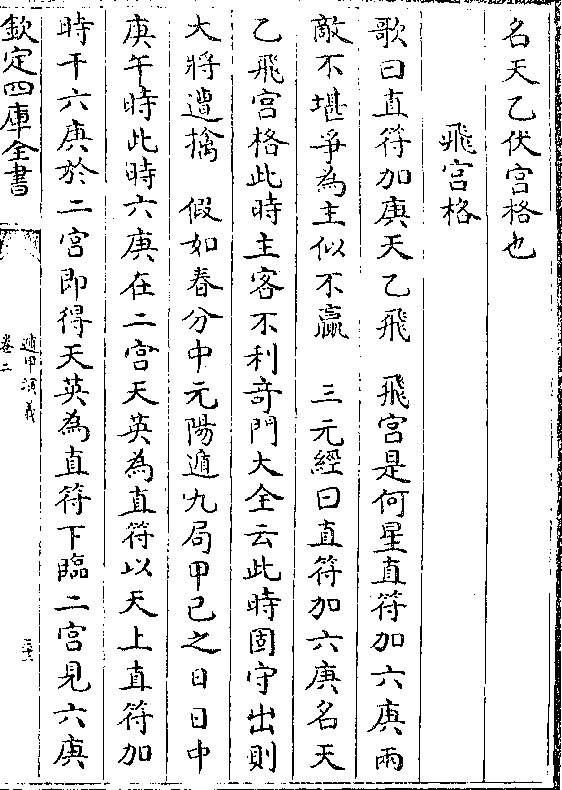 名天乙伏宫格也
飛宫格
歌曰直符加庚天乙飛　飛宫是何星直符加六庚兩
敵不堪爭為主似不贏　三元經曰直符加六庚名天
乙飛宫格此時主客不利竒門大全云此時固守出則
大將遭擒　假如春分中元陽遁九局甲己之日日中
庚午時此時六庚在二宫天英為直符以天上直符加
時干六庚於二宫即得天英為直符下臨二宫見六庚
欽定四庫全書
遁甲演義
卷二